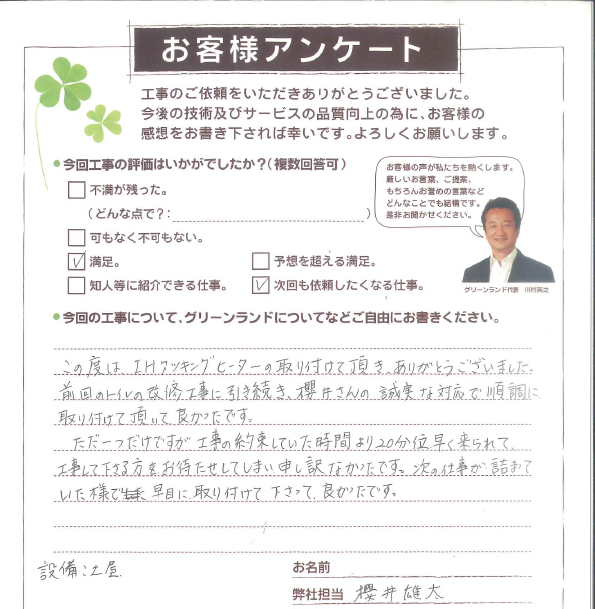 お客様アンケート
工事のご依頼をいただきありがとうございました。
今後の技術及びサービスの品質向上の為に、お客様の
感想をお書き下されば幸いです。よろしくお願いします。
今回工事の評価はいかがでしたか?(複数回答可)
不満が残った。
(どんな点で?: )
可もなく不可もない。
満足。
予想を超える満足。
知人等に紹介できる仕事。
次回も依頼したくなる仕事。
お客様の声が私たちを熱くします。
厳しいお言葉、ご提案、
もちろんお誉めの言葉など
どんなことでも結構です。
是非お聞かせください。
グリーンランド代表 川村英之
今回の工事について、グリーンランドについてなどご自由にお書きください。
この度は、IHクッキングヒーターの取り付けて頂き、ありがとうございました。
前回のトイレの改修工事に引き続き、櫻井さんの誠実な対応で順調に
取り付けて頂いて良かったです。
ただ一つだけですが工事の約束していた時間より20分位早く来られて、
工事して下さる方をお待たせしてしまい申し訳なかったです。次の仕事が詰まって
いた様で 早目に取り付けて下さって良かったです。
設備:土屋
お名前
弊社担当 櫻井雄太